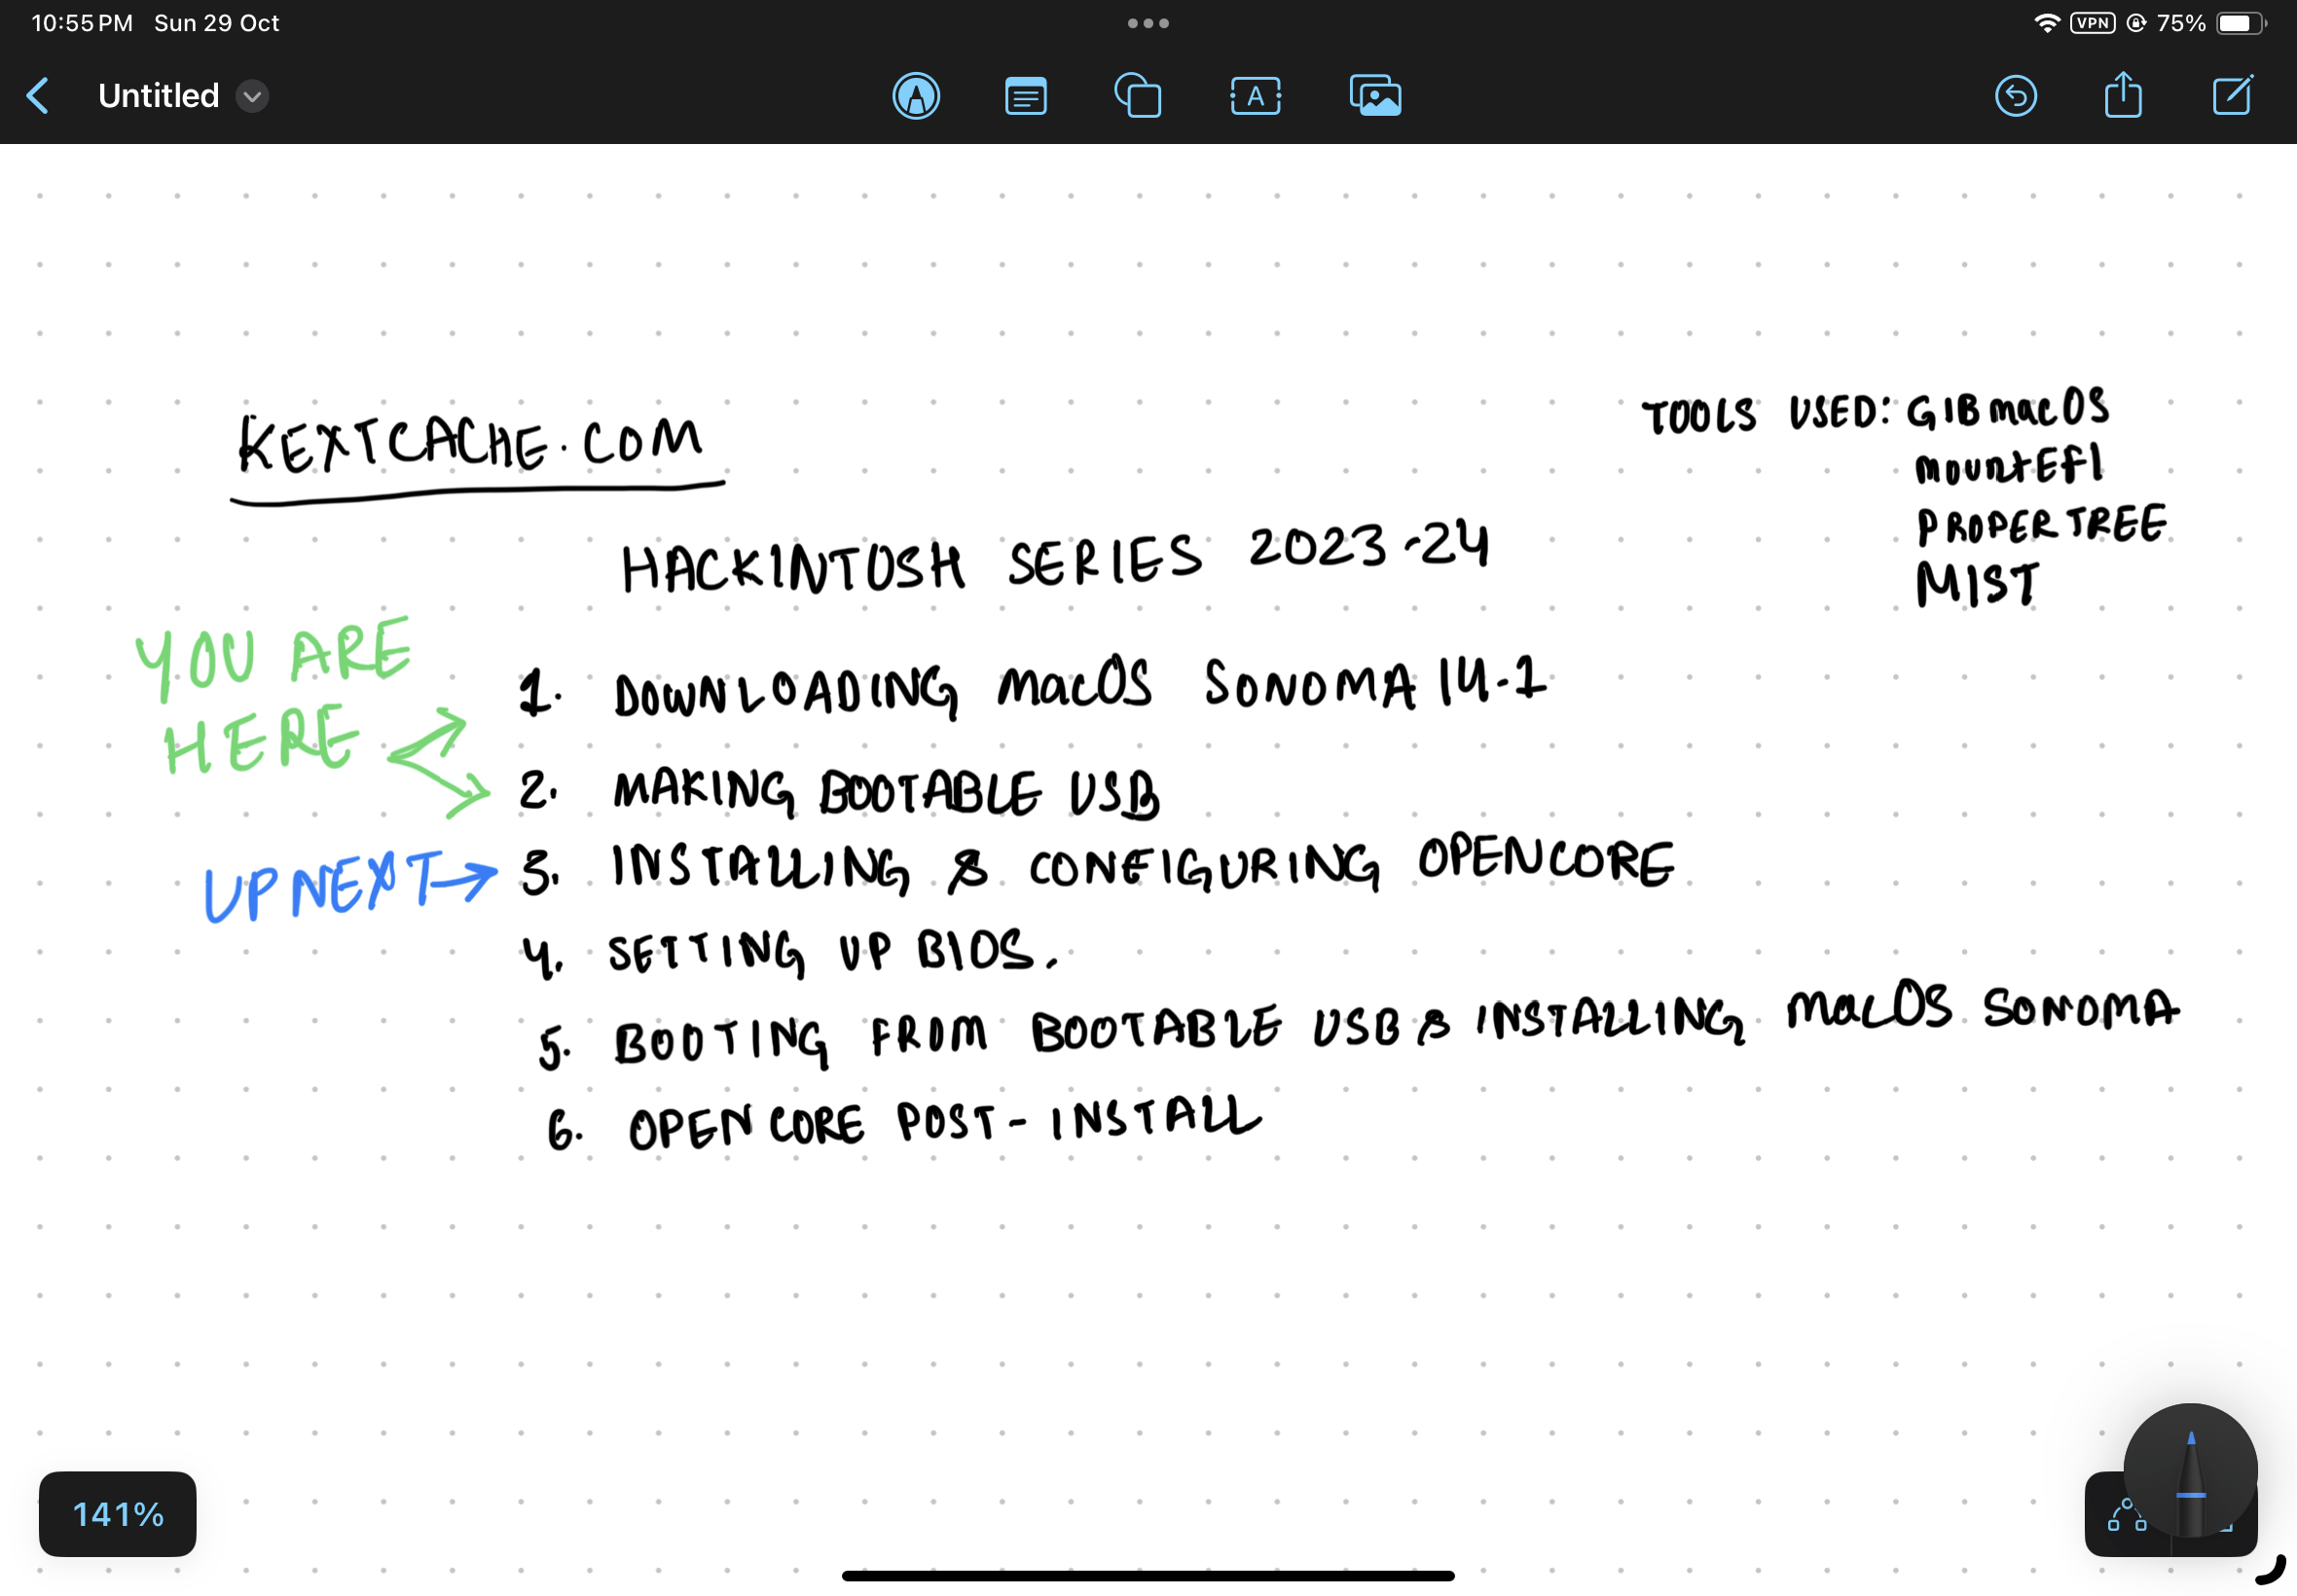 10:55 PM Sun 29 Oct
VPN 75%
Untitled
A
KEXTCACHE.COM
TOOLS USED: GIBmacOS
mountEFI
PROPERTREE
MIST
HACKINTOSH SERIES 2023-24
YOU ARE
HERE
1. DOWNLOADING macOS SONOMA 14.1
2. MAKING BOOTABLE USB
UP NEXT
3. INSTALLING & CONFIGURING OPENCORE
4. SETTING UP BIOS.
5. BOOTING FROM BOOTABLE USB & INSTALLING macOS SONOMA
6. OPENCORE POST-INSTALL
141%